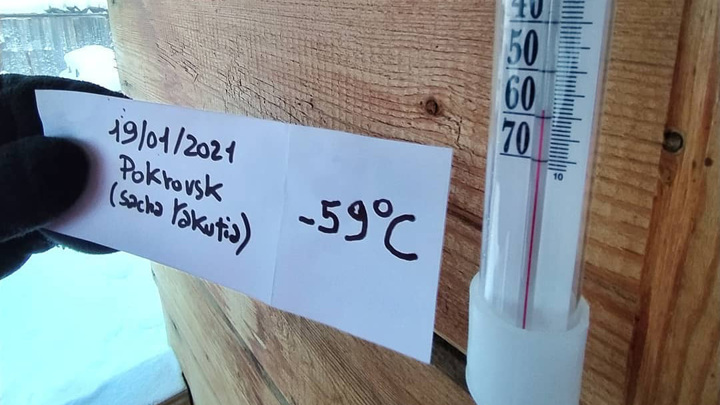 19/01/2021
Pokrovsk
(sacha Yakutia)
-59°C
40
50
60
70
10